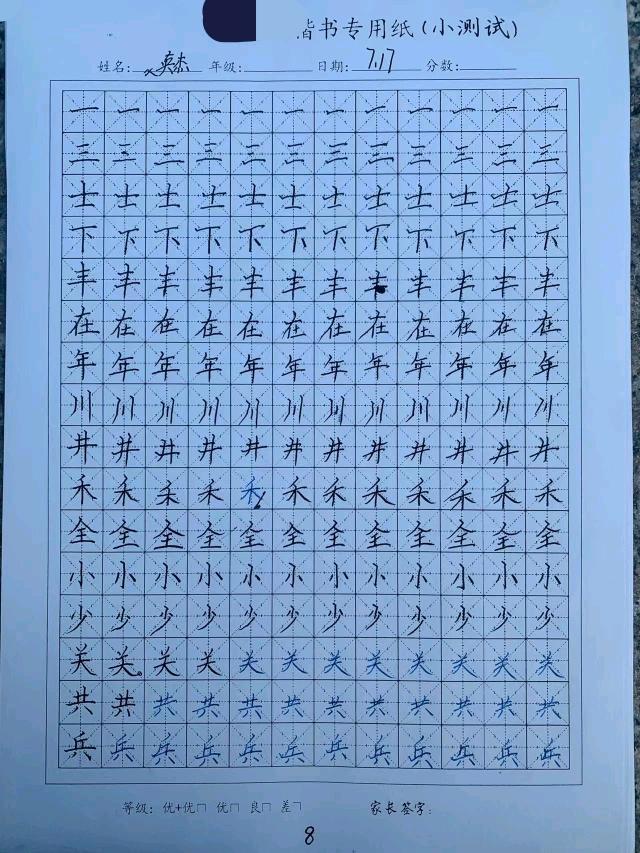 楷书专用纸(小测试)
姓名: 英杰 年级: 日期: 7.17 分数:
一 一 一 一 一 一 一 一 一 一 一 一
三 三 三 三 三 三 三 三 三 三 三 三
士 士 士 士 士 士 士 士 士 士 士 士
下 下 下 下 下 下 下 下 下 下 下 下
丰 丰 丰 丰 丰 丰 丰 丰 丰 丰 丰 丰
在 在 在 在 在 在 在 在 在 在 在 在
年 年 年 年 年 年 年 年 年 年 年 年
川 川 川 川 川 川 川 川 川 川 川 川
井 井 井 井 井 井 井 井 井 井 井 井
禾 禾 禾 禾 禾 禾 禾 禾 禾 禾 禾 禾
全 全 全 全 全 全 全 全 全 全 全 全
小 小 小 小 小 小 小 小 小 小 小 小
少 少 少 少 少 少 少 少 少 少 少 少
关 关 关 关 关 关 关 关 关 关 关 关
共 共 共 共 共 共 共 共 共 共 共 共
兵 兵 兵 兵 兵 兵 兵 兵 兵 兵 兵 兵
等级: 优+优 优 良 差 家长签字:
8